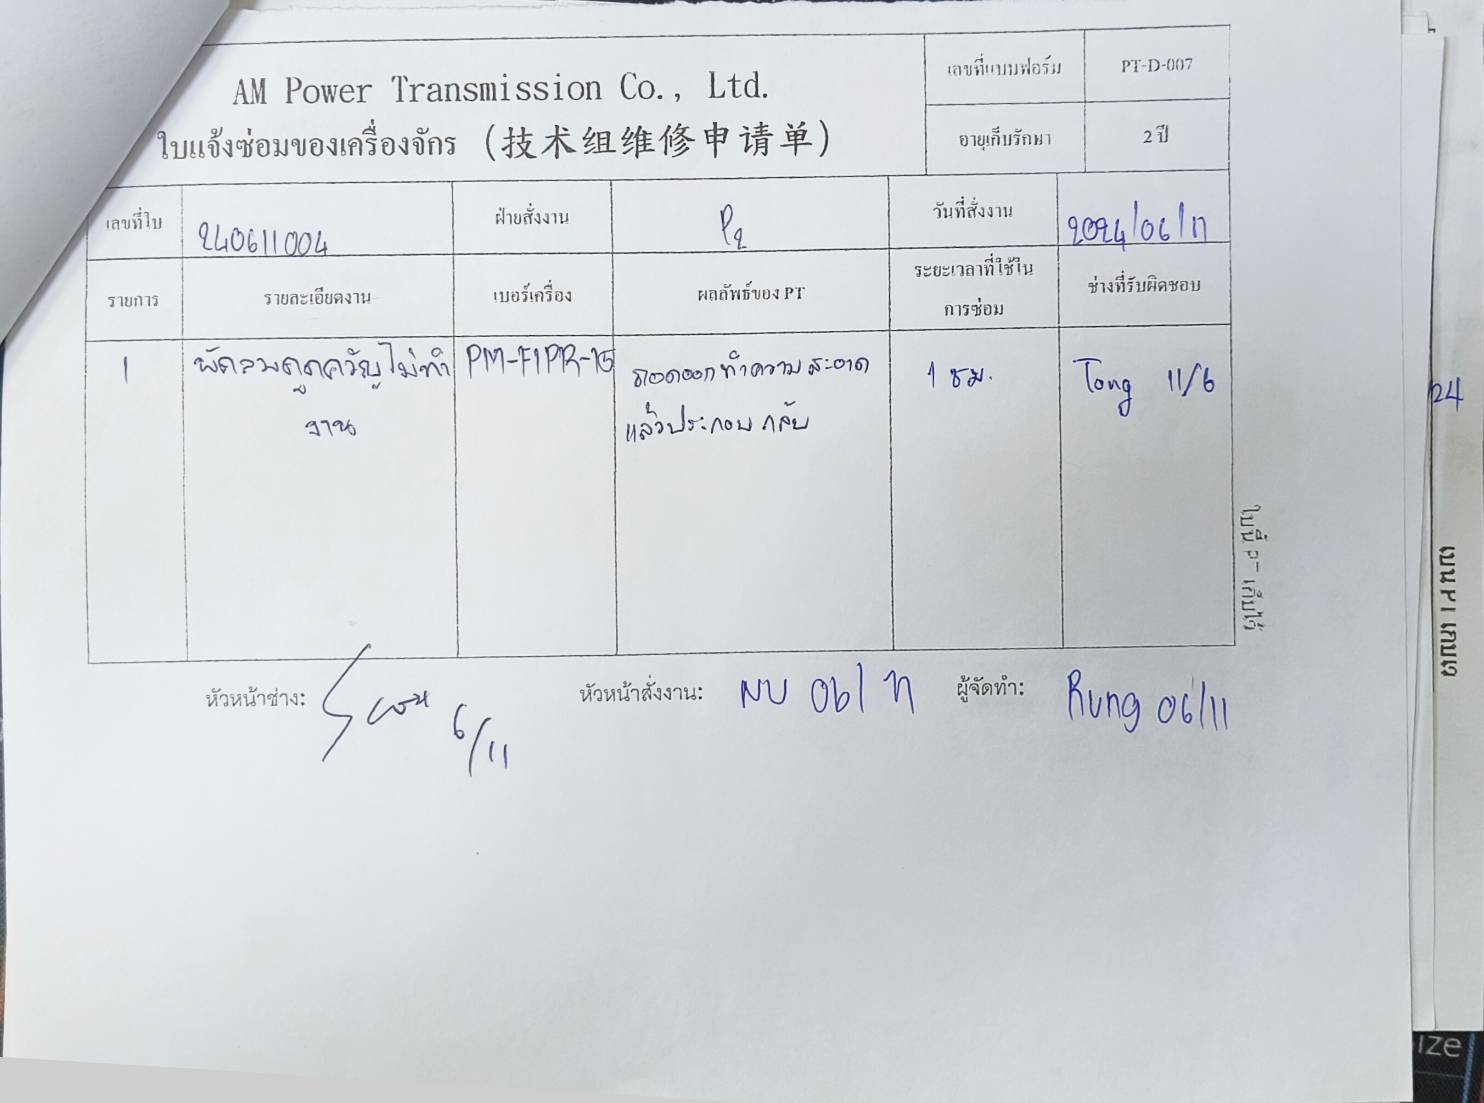 AM Power Transmission Co., Ltd.
ใบแจ้งซ่อมของเครื่องจักร (技术组维修申请单)
เลขที่แบบฟอร์ม PT-D-007
อายุเก็บรักษา 2 ปี
เลขที่ใบ 240611004 ฝ่ายสั่งงาน P2 วันที่สั่งงาน 2024/06/11
รายการ รายละเอียดงาน เบอร์เครื่อง ผลลัพธ์ของ PT ระยะเวลาที่ใช้ใน ช่างที่รับผิดชอบ
การซ่อม
1 พัดลมดูดควันไม่ทำ PM-F1PR-15 ถอดออกทำความสะอาด 1 ชม. Tong 11/6
งาน แล้วประกอบกลับ
หัวหน้าช่าง: 6/11 หัวหน้าสั่งงาน: NU 06/11 ผู้จัดทำ: Rung 06/11
24
ize